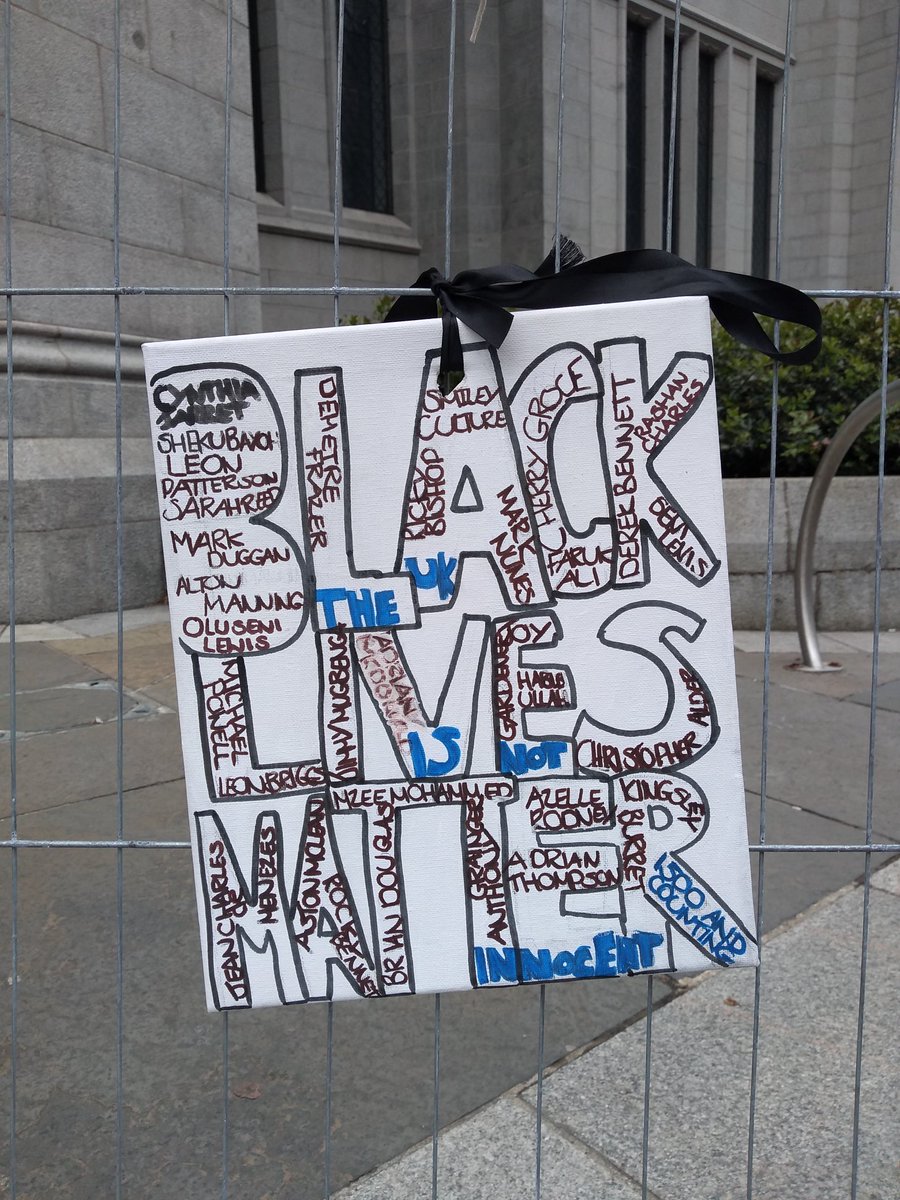 BLACK
CYNTHIA
JARRET
SHEKU BAYOH
LEON
PATTERSON
SARAH REED
MARK
DUGGAN
ALTON
MANNING
OLUSENI
LEWIS
DEMETRE
FRAZER
THE UK
SMILEY
CULTURE
RICKY
BISHOP
MARK
NUNES
CHERRY GROCE
FARUK
ALI
DEREK BENNETT
RASHAN
CHARLES
SEAN
LEWIS
LIVES
MICHAEL
POWELL
LEON BRIGGS
IS
JOY
GARDENER
HABIB
ULLAH
NOT
CHRISTOPHER ALDER
MATTER
MZEE MOHAMMED
JEAN CHARLES
DE
MENEZES
ASTON MCLEAN
BRIAN DOUGLAS
ANTHONY
GRAINGER
AZELLE
RODNEY
ADRIAN
THOMPSON
KINGSLEY
BURRELL
INNOCENT
1500 AND
COUNTING